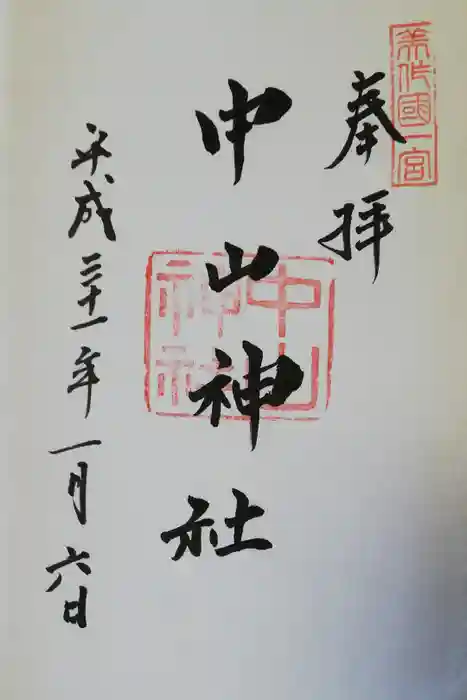 美作國一宮
奉拝
中山神社
中山
神社
平成三十一年一月六日